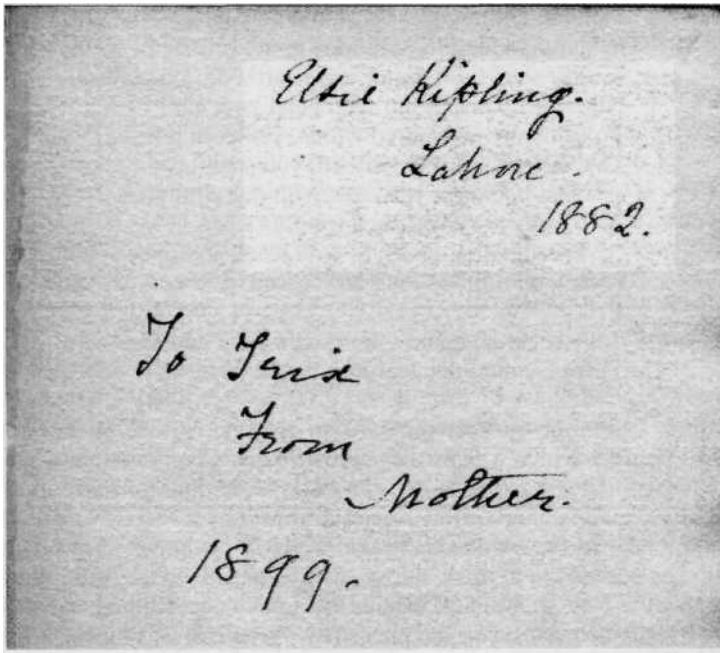 Elsie Kipling.
Lahore.
1882.
To Trix
From
Mother.
1899.